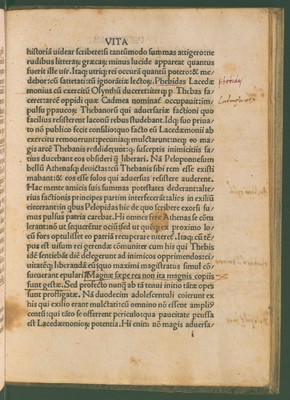 VITA
historiã uidear scribere: si tantũmodo summas attigero: ne
rudibus litteraȝ græcaȝ minus lucide appareat quantus
fuerit ille uir. Itaqȝ utriqȝ rei occurrã quantũ potero: & me
debor: cũ satietati: tũ ignorãtiæ lectoȝ. Phebidas Lacedæ
monius cũ exercitũ Olynthũ duceret: iterqȝ p Thebas fa
ceret: arcẽ oppidi quæ Cadmea nominat͛ occupauit: im
pulsu ppaucoȝ Thebanoȝ qui aduersariæ factioni quo
facilius resisterent laconũ rebus studebant. Idqȝ suo priua
to nõ publico fecit consilio: quo facto eũ Lacedæmonii ab
exercitu remouerunt: pecuniaqȝ mulctarunt: neqȝ eo ma
gis arcẽ Thebanis reddiderunt: qȝ susceptis inimicitiis sa
tius ducebant eos obsideri qȝ liberari. Nã Peloponnesiũ
bellũ Athenasqȝ deuictas: cũ Thebanis sibi rem esse existi
mabant: & eos esse solos qui aduersus resistere auderent.
Hac mente amicis suis summas potestates dederant: alte
rius factionis principes partim interfecerãt: alios in exiliũ
eiecerant: in qbus Pelopidas hic de quo scribere exorsi su
mus pulsus patria carebat. Hi omnes fere Athenas se cõtu
lerant: nõ ut sequerẽtur ociũ: sed ut quẽqȝ ex proximo lo
cũ fors optulisset eo patriã recuperare niterent͛. Itaqȝ cũ tẽ
pus est uisum rei gerendæ cõmuniter cum his qui Thebis
idẽ sentiebãt diẽ delegerunt ad inimicos opprimendos: ci
uitatẽqȝ liberandã eũ quo maximi magistratus simul cõ
sueuerant epulari. Magnæ sæpe res non ita magnis copiis
sunt gestæ. Sed profecto nunqȝ ab tã tenui initio tãtæ opes
sunt profligatæ. Nã duodecim adolescentuli coierunt ex
his qui exilio erant mulctati: cũ omnino nõ essent ampliꝰ
centũ: qui tãto se offerrent periculo: qua paucitate pculsa
est Lacedæmonioȝ potentia. Hi enim nõ magis aduersa
i
Phebidas